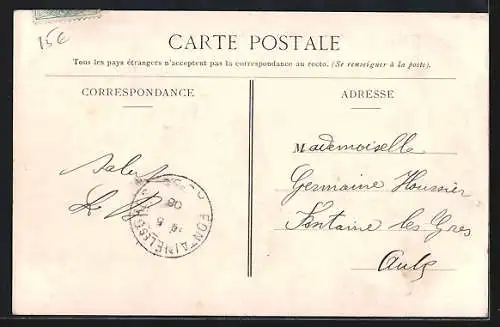 15€
CARTE POSTALE
Tous les pays étrangers n'acceptent pas la correspondance au recto. (Se renseigner à la poste).
CORRESPONDANCE
ADRESSE
Mademoiselle
Germaine Houssier
Fontaine les Grès
Aube
Salut
FONTAINE-LES-GRÈS